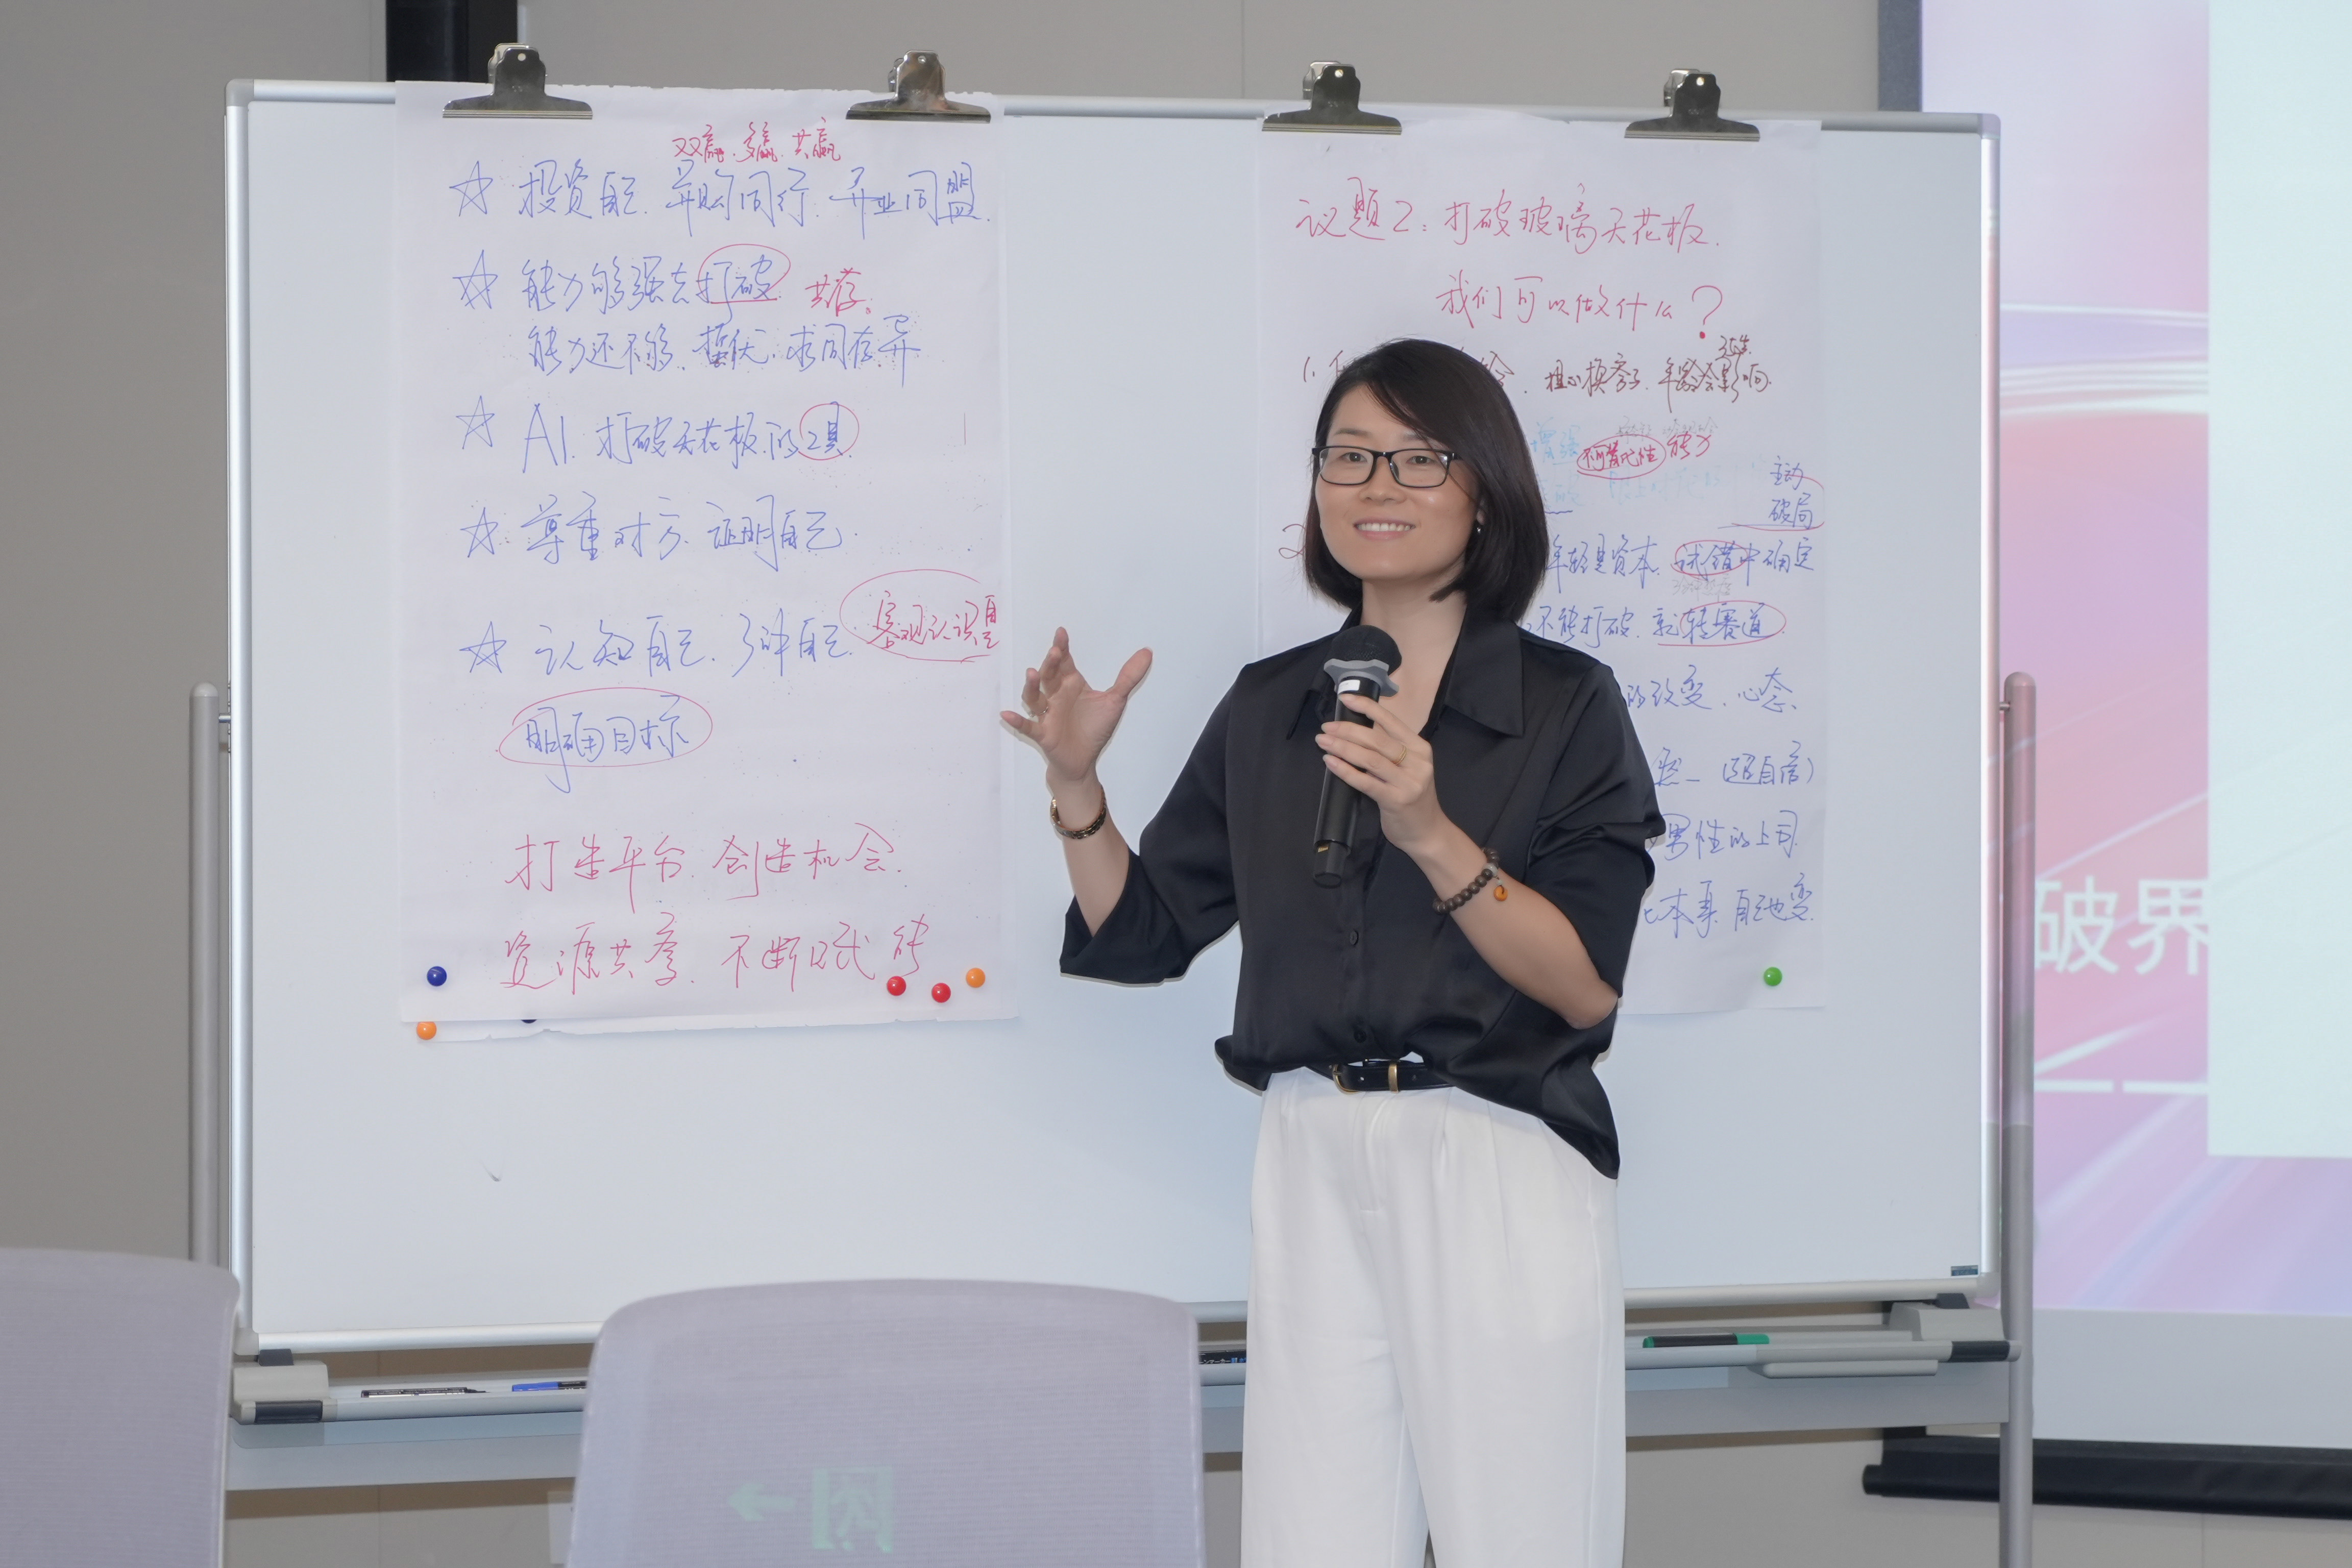 双赢.多赢.共赢
☆ 投资自己.并购同行.异业同盟.
☆ 能力够强去打破. 共存。
能力还不够.蛰伏.求同存异
☆ AI.打破天花板的工具.
☆ 尊重对方.证明自己.
☆ 认知自己.了解自己. 客观认识自己
明确目标
打造平台.创造机会.
资源共享.不断赋能
议题2:打破玻璃天花板.
我们可以做什么?
1. 担心换房子.年龄会影响.
增强 不可替代性 能力
主动
破局
2 年轻是资本.试错中确定
不能打破.就转赛道.
的改变.心态.
自信)
男性的上司.
本身.自己改变.
破界